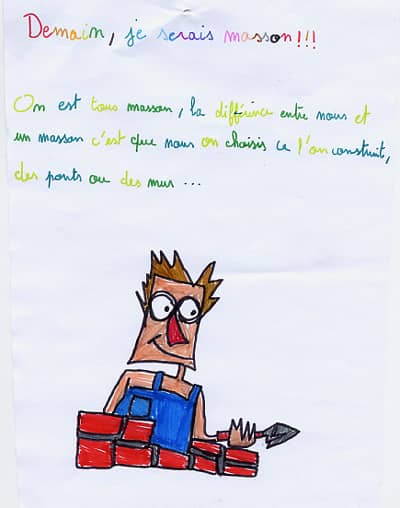 Demain, je serais masson!!!
On est tous masson, la différence entre nous et
un masson c'est que nous on choisis ce l'on construit,
des ponts ou des murs ...